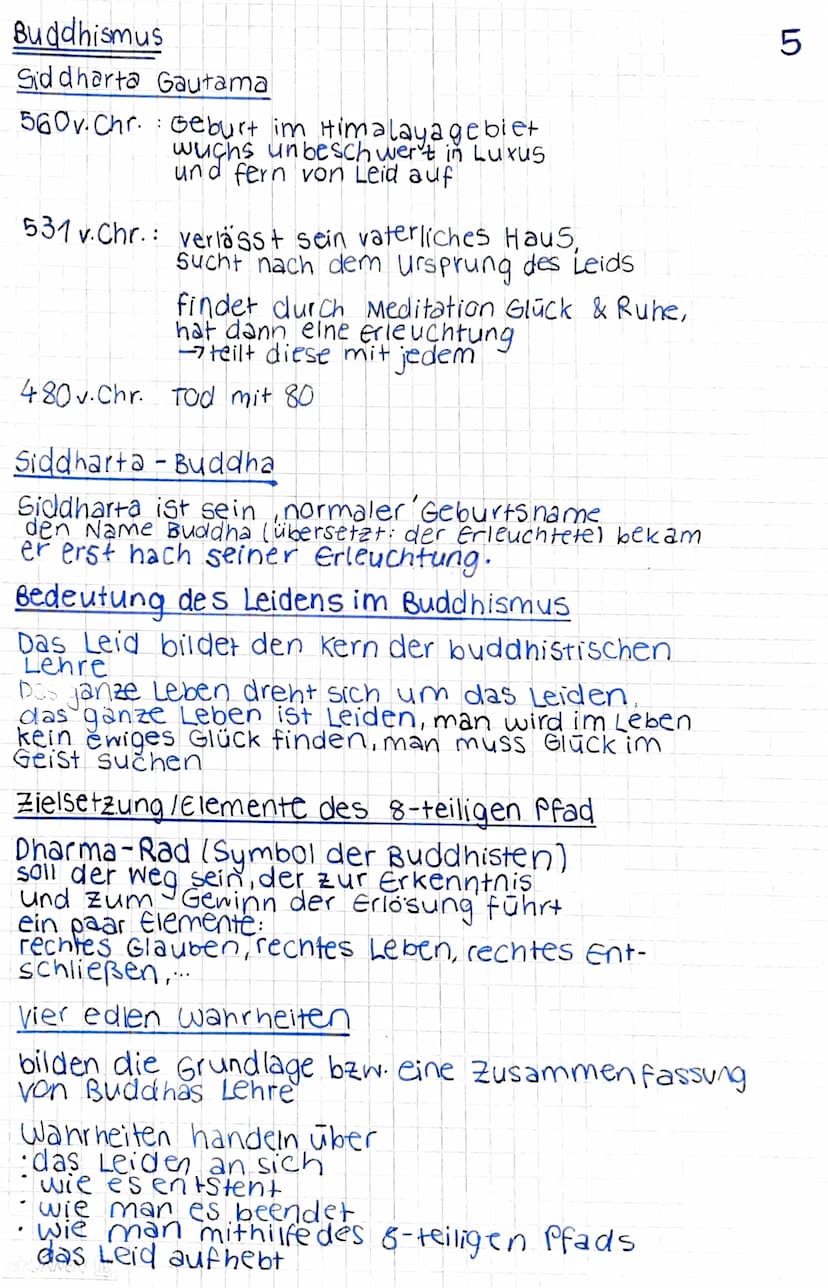 Buddhismus
5
Siddharta Gautama
560 v. Chr. : Geburt im Himalayagebiet
wuchs unbeschwert in Luxus
und fern von Leid auf
531 v. Chr. : verlässt sein vaterliches Haus,
sucht nach dem Ursprung des Leids
findet durch Meditation Glück & Ruhe,
hat dann eine Erleuchtung
→ teilt diese mit jedem
480 v. Chr. Tod mit 80
Siddharta - Buddha
Siddharta ist sein ,normaler' Geburtsname
den Name Buddha (übersetzt: der Erleuchtete) bekam
er erst nach seiner Erleuchtung.
Bedeutung des Leidens im Buddhismus
Das Leid bildet den Kern der buddhistischen
Lehre
Das ganze Leben dreht sich um das Leiden,
das ganze Leben ist Leiden, man wird im Leben
kein ewiges Glück finden, man muss Glück im
Geist suchen
Zielsetzung/Elemente des 8-teiligen Pfad
Dharma-Rad (Symbol der Buddhisten)
soll der Weg sein, der zur Erkenntnis
und zum Gewinn der Erlösung führt
ein paar Elemente:
rechtes Glauben, rechtes Leben, rechtes Ent-
schließen, ...
Vier edlen Wahrheiten
bilden die Grundlage bzw. eine Zusammenfassung
von Buddhas Lehre
Wahrheiten handeln über
· das Leiden an sich
· wie es entsteht
· wie man es beendet
· wie man mithilfe des 8-teiligen Pfads
das Leid aufhebt